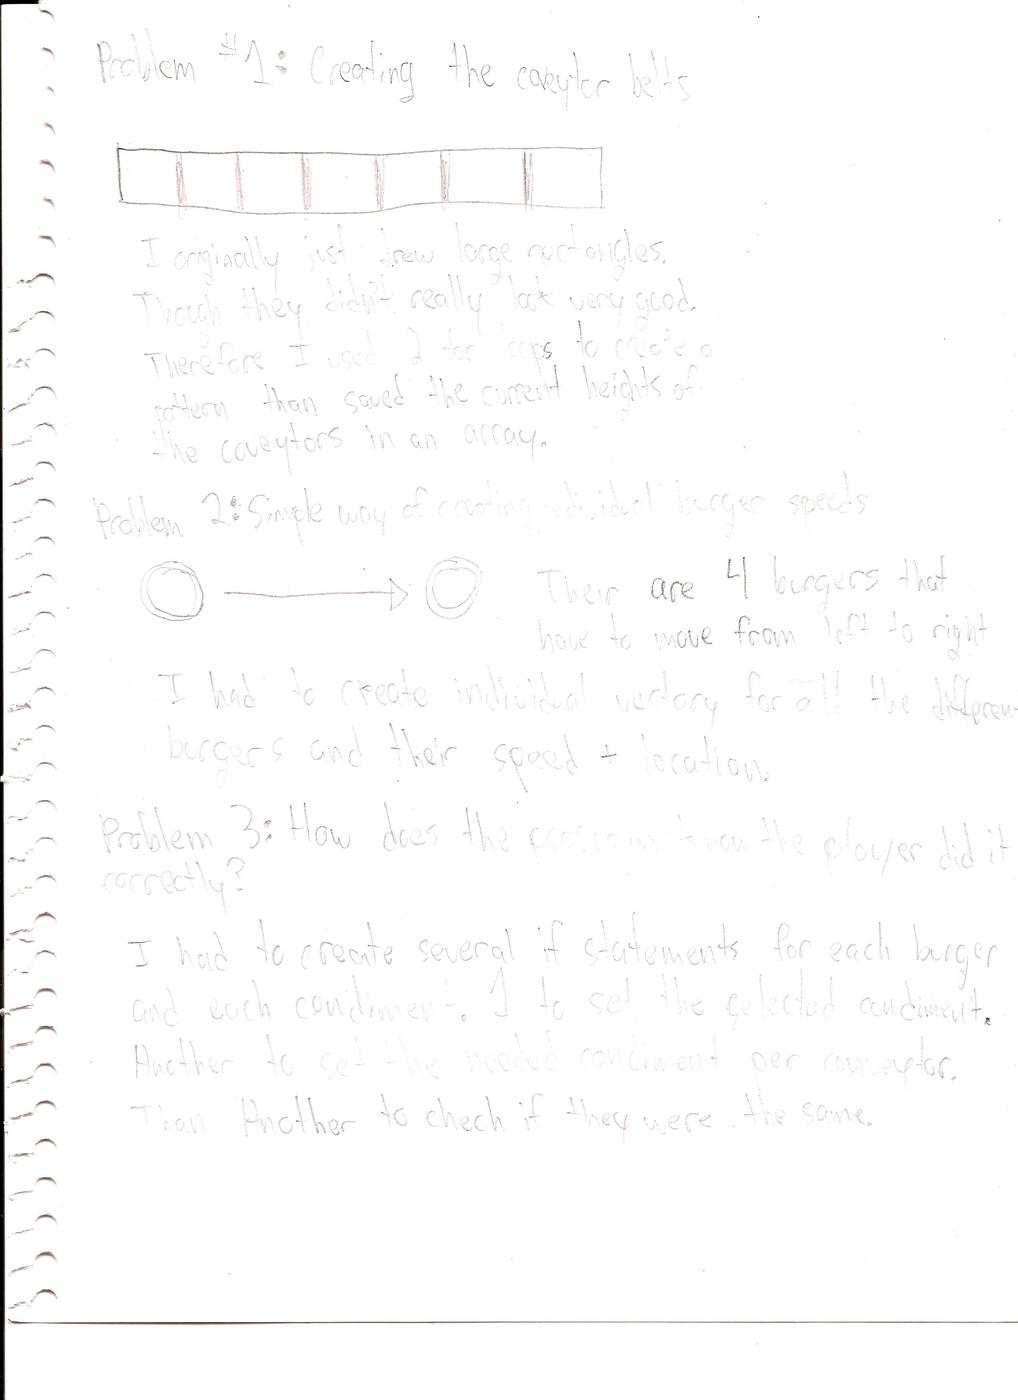 Problem #1: Creating the coveytor belts
I originally just drew large rectangles.
Though they didn't really look very good.
Therefore I used 2 for loops to create a
pattern than saved the current heights of
the coveytors in an array.
Problem 2: Simple way of creating individual burger speeds
Their are 4 burgers that
have to move from left to right
I had to create individual vectory for all the differen
burgers and their speed + location.
Problem 3: How does the program know the player did it
correctly?
I had to create several if statements for each burger
and each condiment. 1 to set the selected condiment.
Another to set the needed condiment per conveytor.
Than Another to chech if they were the same.